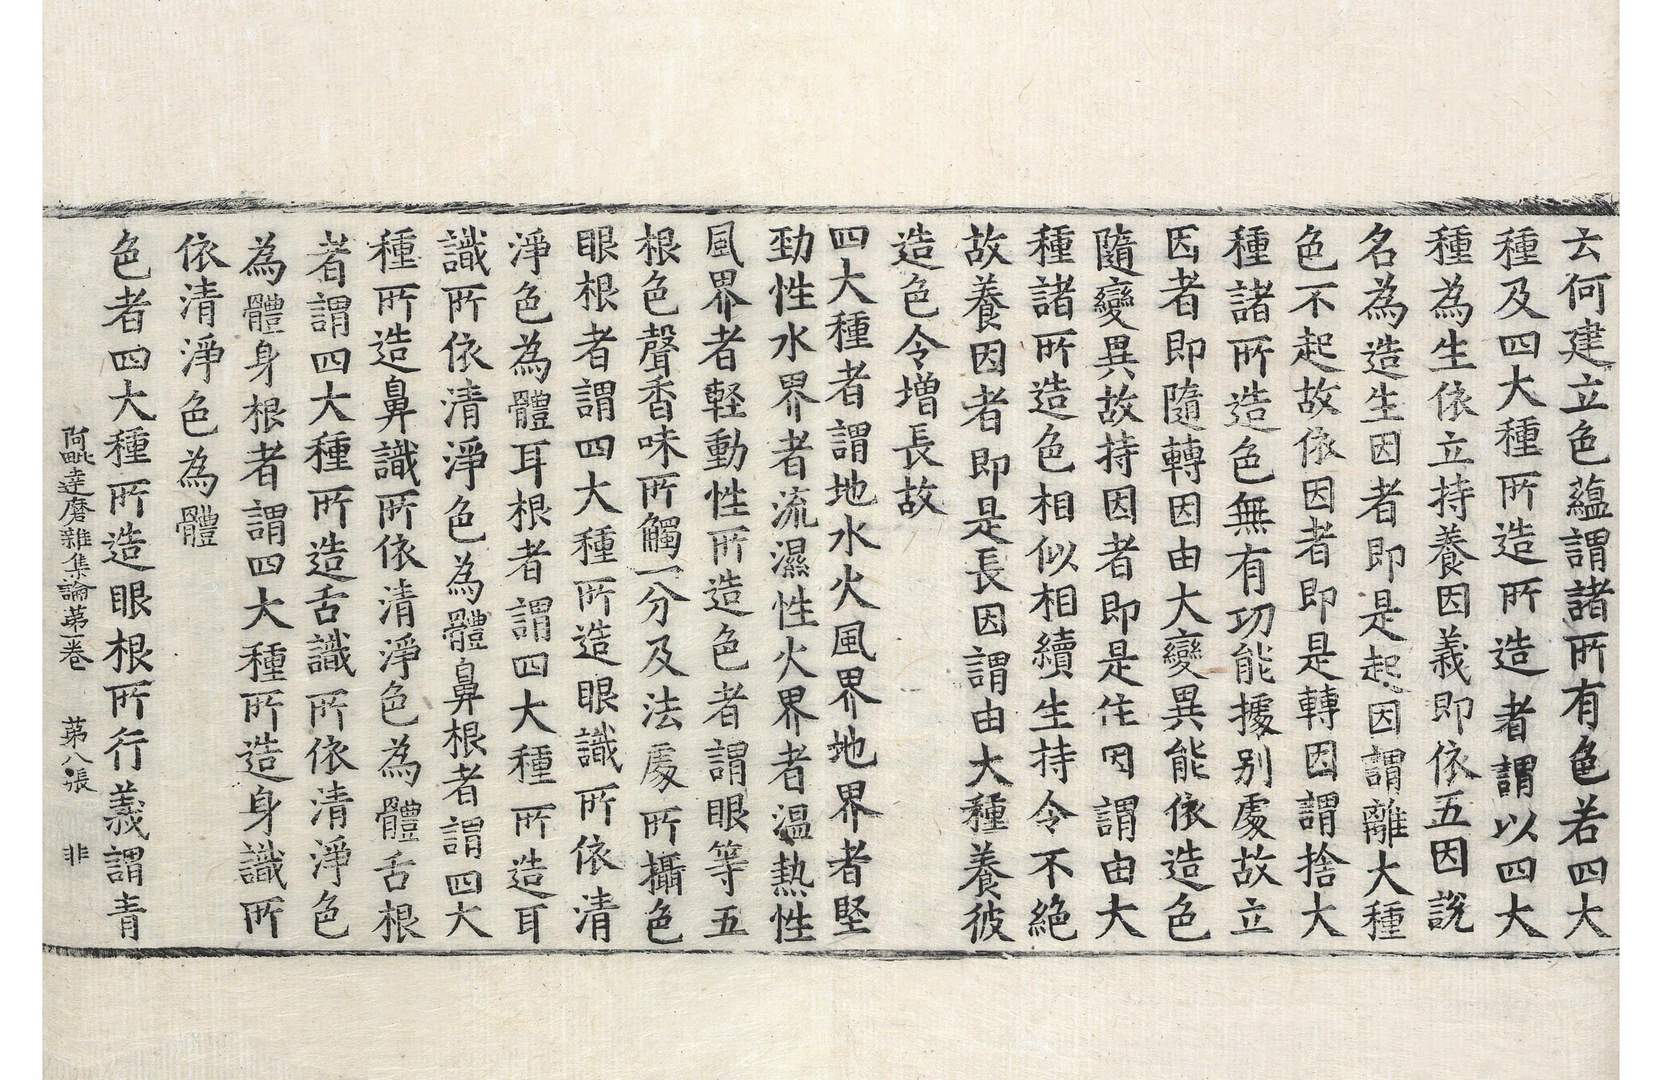 云何建立色蘊謂諸所有色若四大
種及四大種所造所造者謂以四大
種為生依立持養因義即依五因說
名為造生因者即是起因謂離大種
色不起故依因者即是轉因謂捨大
種諸所造色無有功能據別處故立
因者即隨轉因由大變異能依造色
隨變異故持因者即是住因謂由大
種諸所造色相似相續生持令不絕
故養因者即是長因謂由大種養彼
造色令增長故
四大種者謂地水火風界地界者堅
勁性水界者流濕性火界者溫熱性
風界者輕動性所造色者謂眼等五
根色聲香味所觸一分及法處所攝色
眼根者謂四大種所造眼識所依清
淨色為體耳根者謂四大種所造耳
識所依清淨色為體鼻根者謂四大
種所造鼻識所依清淨色為體舌根
者謂四大種所造舌識所依清淨色
為體身根者謂四大種所造身識所
依清淨色為體
色者四大種所造眼根所行義謂青
阿毗達磨雜集論第一卷 第八張 非